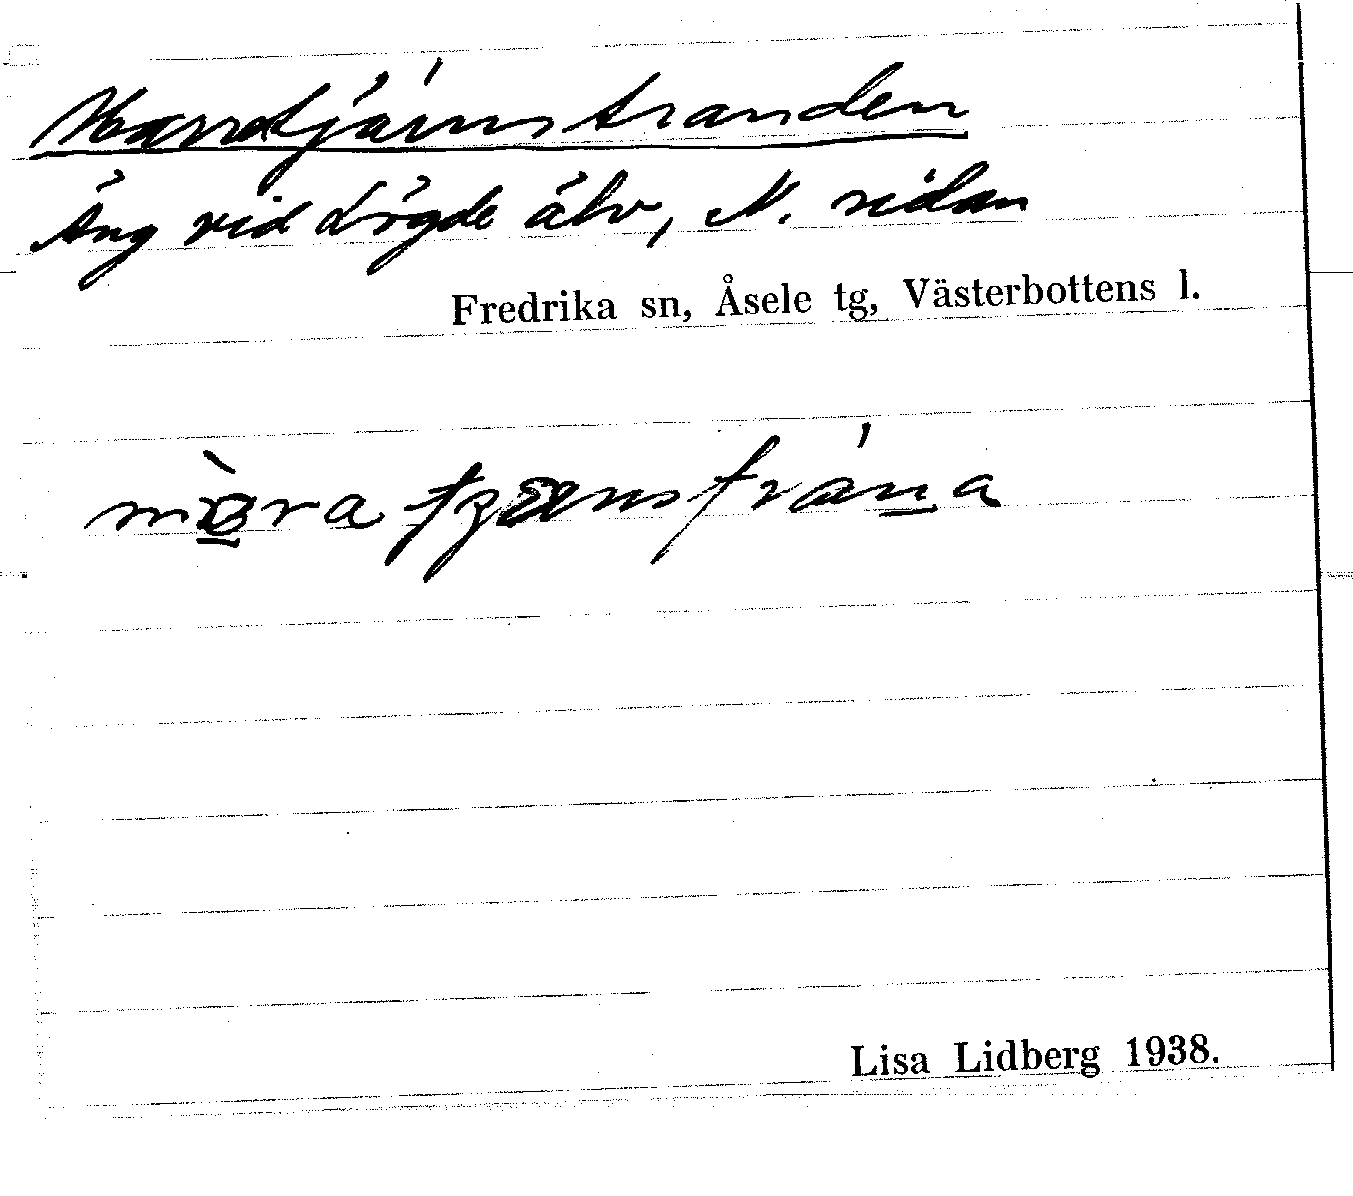 Norratjärnstranden
Äng vid Lögde älv, N. sidan
Fredrika sn, Åsele tg, Västerbottens l.
Lisa Lidberg 1938.